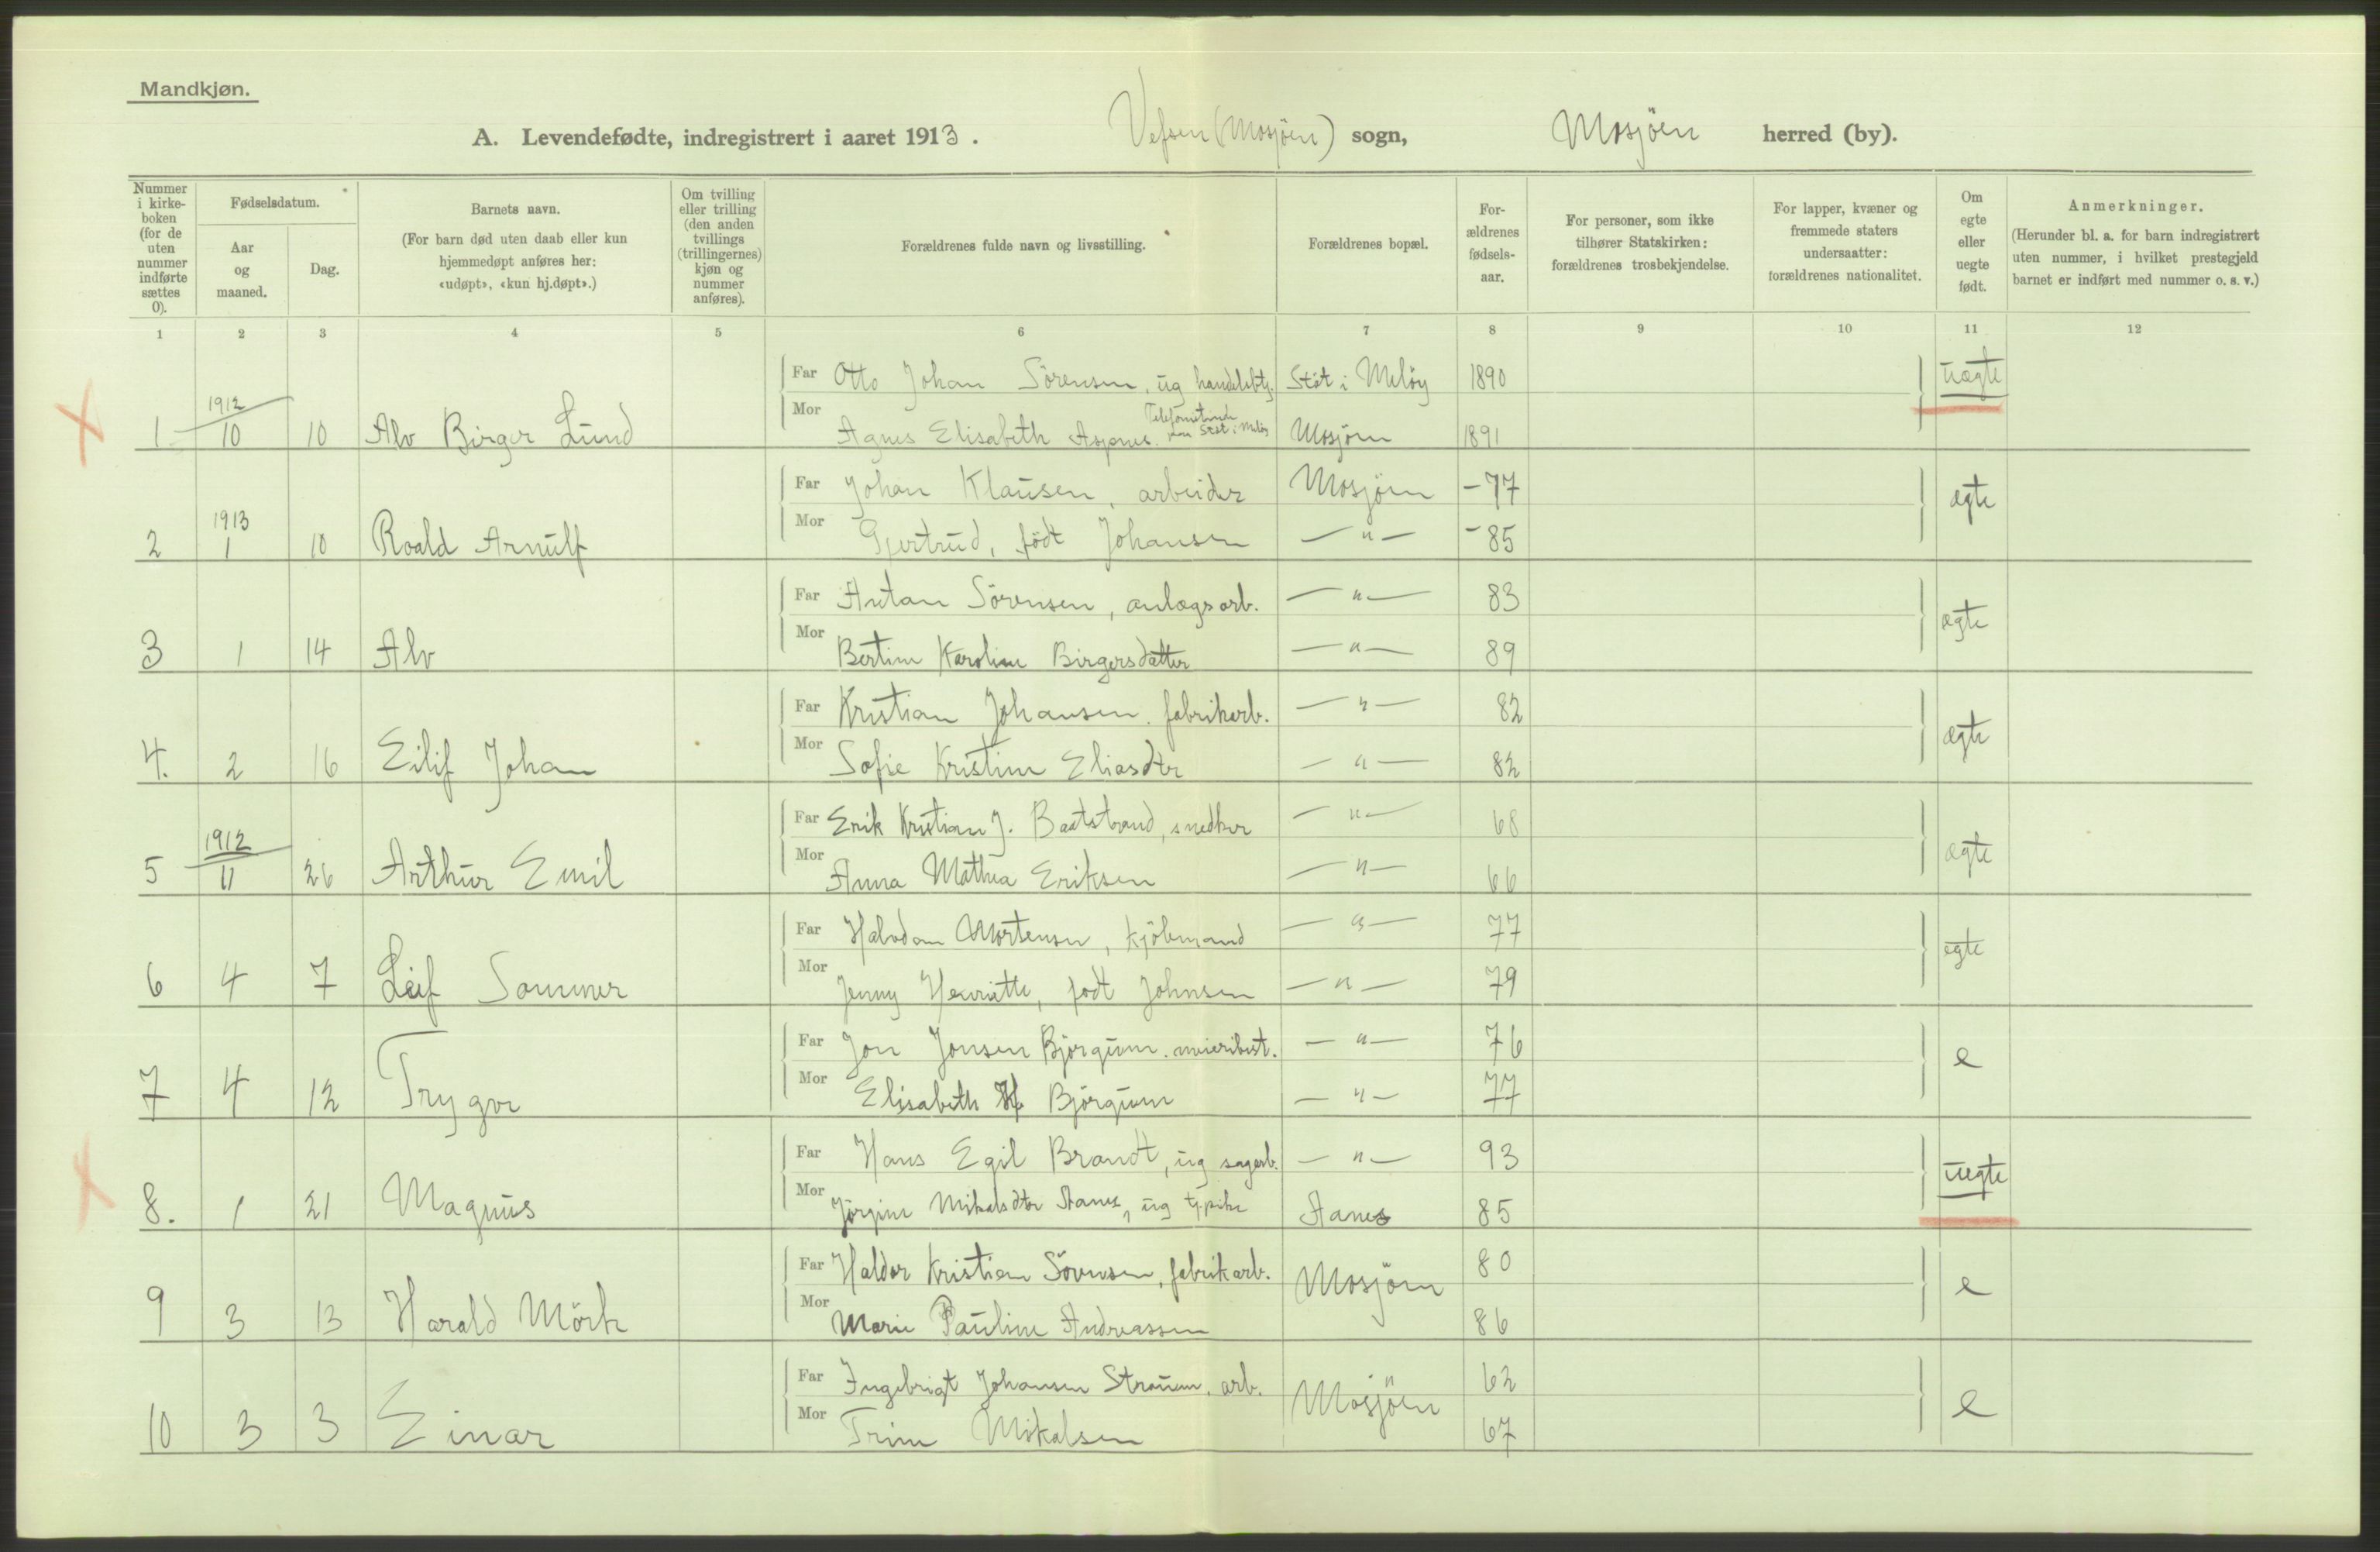 Mandkjøn.
A. Levendefødte, indregistrert i aaret 1913. Vefsen (Mosjöen) sogn, Mosjöen herred (by).
Nummer i kirkeboken (for de uten nummer indførte sættes 0).
Fødselsdatum.
Aar og maaned.
Dag.
Barnets navn.
(For barn død uten daab eller kun hjemmedøpt anføres her: «udøpt», «kun hj.døpt».)
Om tvilling eller trilling (den anden tvillings (trillingernes) kjøn og nummer anføres).
Forældrenes fulde navn og livsstilling.
Forældrenes bopæl.
Forældrenes fødselsaar.
For personer, som ikke tilhører Statskirken: forældrenes trosbekjendelse.
For lapper, kvæner og fremmede staters undersaatter: forældrenes nationalitet.
Om egte eller uegte født.
Anmerkninger.
(Herunder bl. a. for barn indregistrert uten nummer, i hvilket prestegjeld barnet er indført med nummer o. s. v.)
1 2 3 4 5 6 7 8 9 10 11 12
Far Otto Johan Sörensen, ug handelsbtj. Stöt i Melöy 1890 uægte
1 1912/10 10 Alv Birger Lund Mor Agnes Elisabeth Aspnes. Telefonistinde Stöt i Melöy Mosjöen 1891
Far Johan Klausen, arbeider Mosjöen -77 ægte
2 1913 1 10 Roald Arnulf Mor Gjertrud, födt Johansen —"— -85
Far Anton Sörensen, anlægsarb. —"— 83 ægte
3 1 14 Alv Mor Bertine Karoline Birgersdatter —"— 89
Far Kristian Johansen. fabrikarb. —"— 82 ægte
4. 2 16 Eilif Johan Mor Sofie Kristine Eliasdtr —"— 82
Far Erik Kristian J. Baatstrand, snedker —"— 68 ægte
5 1912/11 26 Arthur Emil Mor Anna Mathea Eriksen —"— 66
Far Halvdan Mortensen, kjöbmand —"— 77 egte
6 4 7 Leif Sommer Mor Jenny Henriette, födt Johnsen —"— 79
Far Jon Jonsen Bjørgum. meieribest. —"— 76 e
7 4 12 Trygve Mor Elisabeth Bjørgum —"— 77
Far Hans Egil Brandt, ug sagarb. —"— 93 uegte
8. 1 21 Magnus Mor Jörgine Mikalsdtr Aanes, ug tj.pike Aanes 85
Far Haldor Kristian Sörensen, fabrikarb. Mosjöen 80 e
9 3 13 Harald Mörk Mor Marie Pauline Andreassen 86
Far Ingebrigt Johansen Straum, arb. Mosjöen 62 e
10 3 3 Einar Mor Trine Mikalsen 67